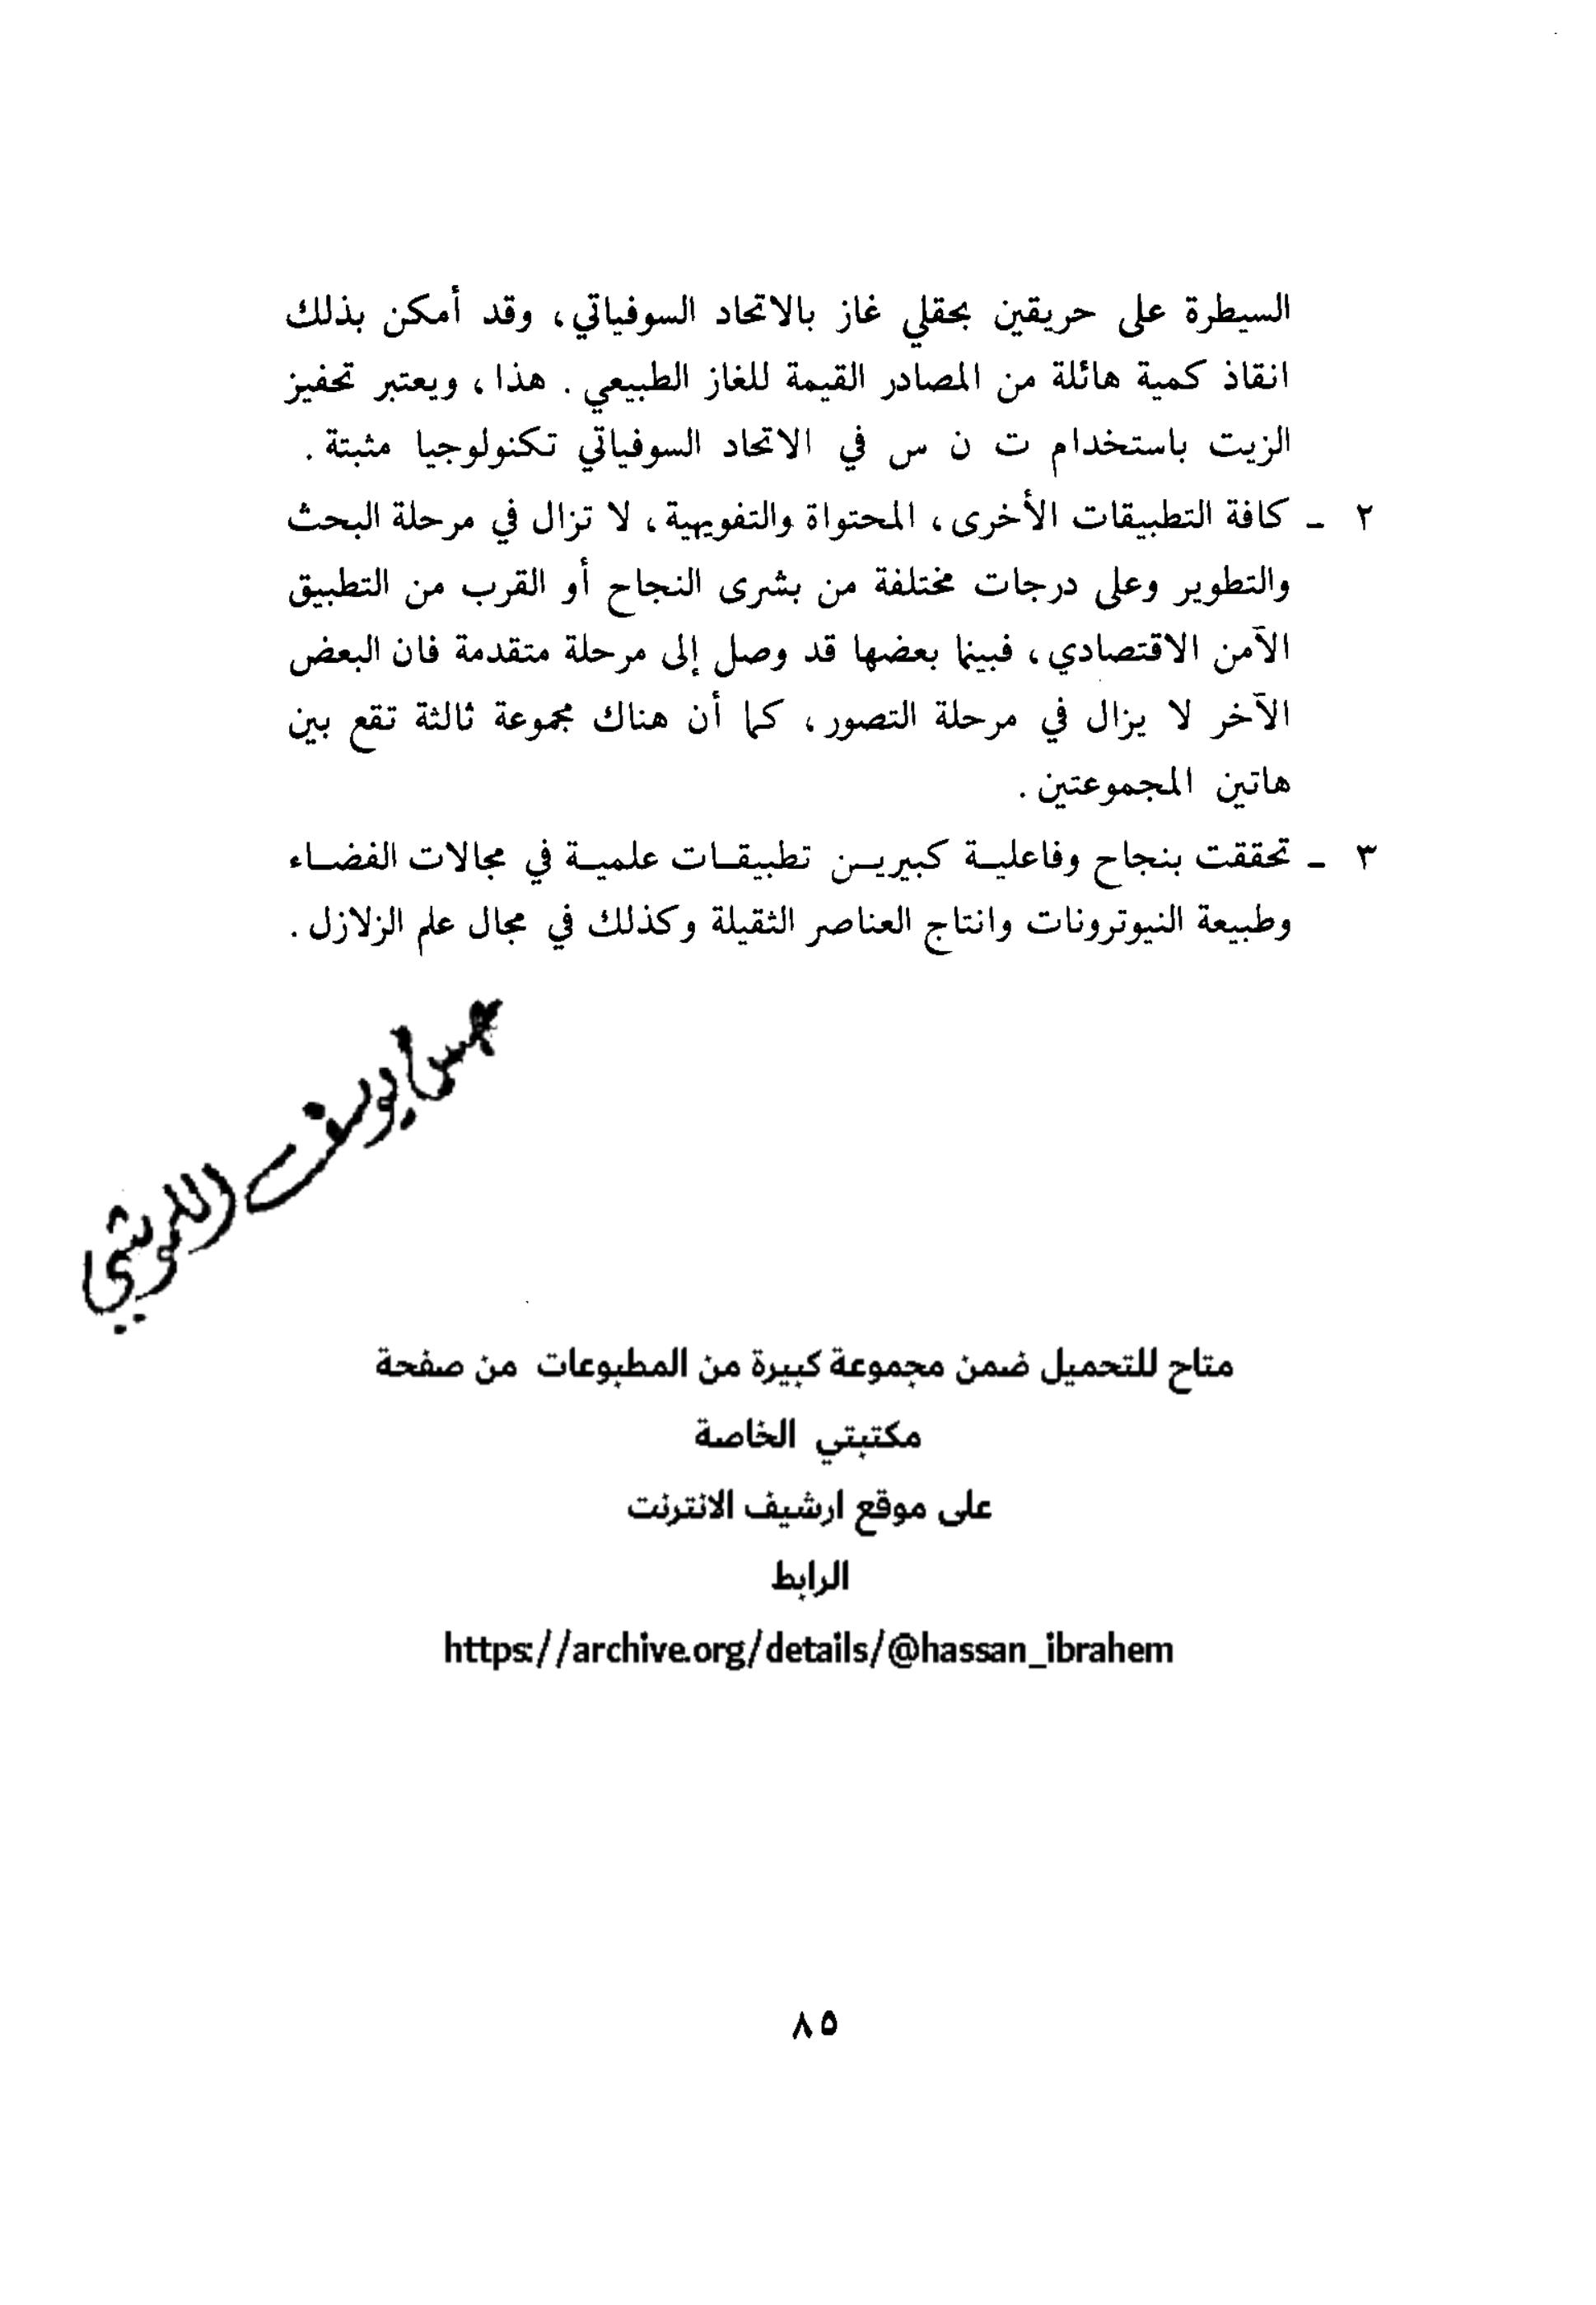 السيطرة على حريقين بحقلي غاز بالاتحاد السوفياتي، وقد أمكن بذلك
انقاذ كمية هائلة من المصادر القيمة للغاز الطبيعي. هذا، ويعتبر تحفيز
الزيت باستخدام ت ن س في الاتحاد السوفياتي تكنولوجيا مثبتة.
٢ - كافة التطبيقات الأخرى، المحتواة والتفويهية، لا تزال في مرحلة البحث
والتطوير وعلى درجات مختلفة من بشرى النجاح أو القرب من التطبيق
الآمن الاقتصادي، فبينما بعضها قد وصل إلى مرحلة متقدمة فان البعض
الآخر لا يزال في مرحلة التصور، كما أن هناك مجموعة ثالثة تقع بين
هاتين المجموعتين.
٣ - تحققت بنجاح وفاعليـة كبيريـن تطبيقـات علميـة في مجالات الفضـاء
وطبيعة النيوترونات وانتاج العناصر الثقيلة وكذلك في مجال علم الزلازل.
يوسف
متاح للتحميل ضمن مجموعة كبيرة من المطبوعات من صفحة
مكتبتي الخاصة
على موقع ارشيف الانترنت
الرابط
https://archive.org/details/@hassan_ibrahem
٨٥